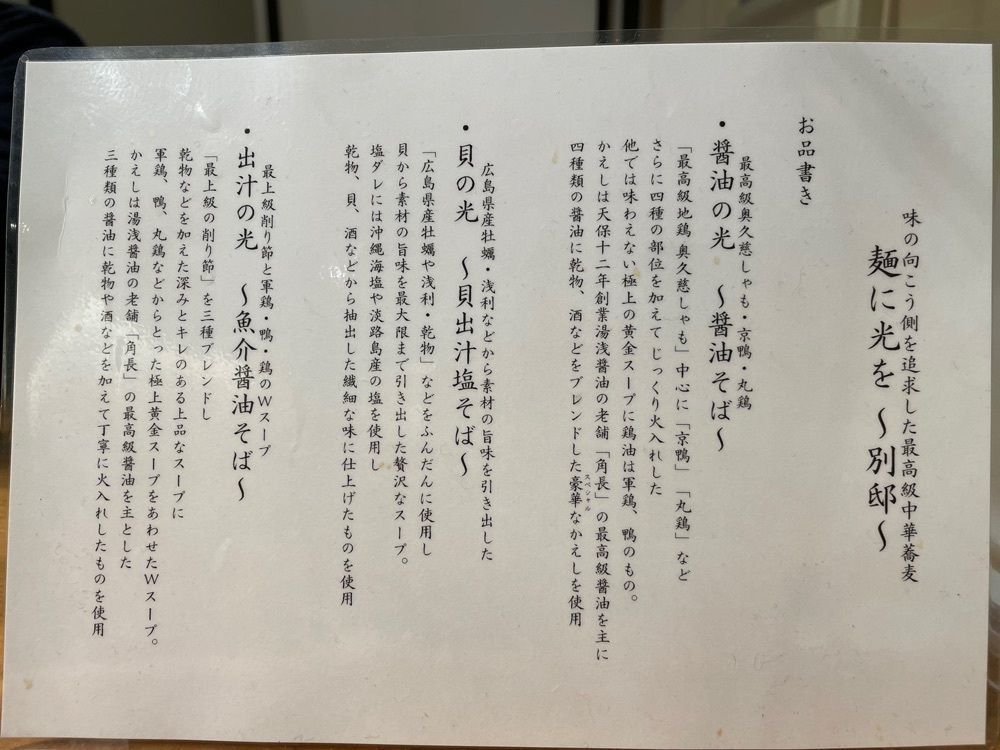 味の向こう側を追求した最高級中華蕎麦
麺に光を ～別邸～
お品書き
・醤油の光 ～醤油そば～
最高級奥久慈しゃも・京鴨・丸鶏
「最高級地鶏奥久慈しゃも」中心に「京鴨」「丸鶏」など
さらに四種の部位を加えてじっくり火入れした
他では味わえない極上の黄金スープに鶏油は軍鶏、鴨のもの。
かえしは天保十二年創業湯浅醤油の老舗「角長」の最高級醤油を主に
四種類の醤油に乾物、酒などをブレンドした豪華なかえしを使用
スペシャル
・貝の光 ～貝出汁塩そば～
広島県産牡蠣・浅利などから素材の旨味を引き出した
「広島県産牡蠣や浅利・乾物」などをふんだんに使用し
貝から素材の旨味を最大限まで引き出した贅沢なスープ。
塩ダレには沖縄海塩や淡路島産の塩を使用し
乾物、貝、酒などから抽出した繊細な味に仕上げたものを使用
・出汁の光 ～魚介醤油そば～
最上級削り節と軍鶏・鴨・鶏のWスープ
「最上級の削り節」を三種ブレンドし
乾物などを加えた深みとキレのある上品なスープに
軍鶏、鴨、丸鶏などからとった極上黄金スープをあわせたWスープ。
かえしは湯浅醤油の老舗「角長」の最高級醤油を主とした
三種類の醤油に乾物や酒などを加えて丁寧に火入れしたものを使用